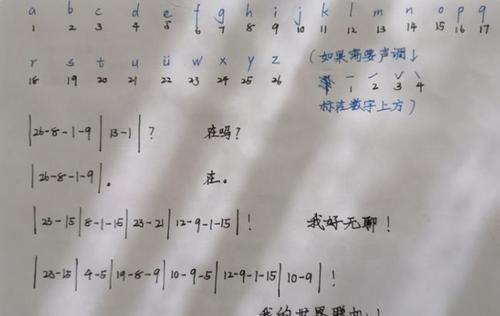 a b c d e f g h i j k l m n o p q
1 2 3 4 5 6 7 8 9 10 11 12 13 14 15 16 17
r s t u ü w x y z （如果需要声调↓
18 19 20 21 22 23 24 25 26 ˉ ˊ ˇ ˋ
1 2 3 4
标注数字上方）
|26-8-1-9|13-1|? 在吗?
|26-8-1-9|。 在。
|23-15|8-1-15|23-21|12-9-1-15|! 我好无聊!
|23-15|4-5|19-8-9|10-9-5|12-9-1-15|10-9|!
我的世界联机!!